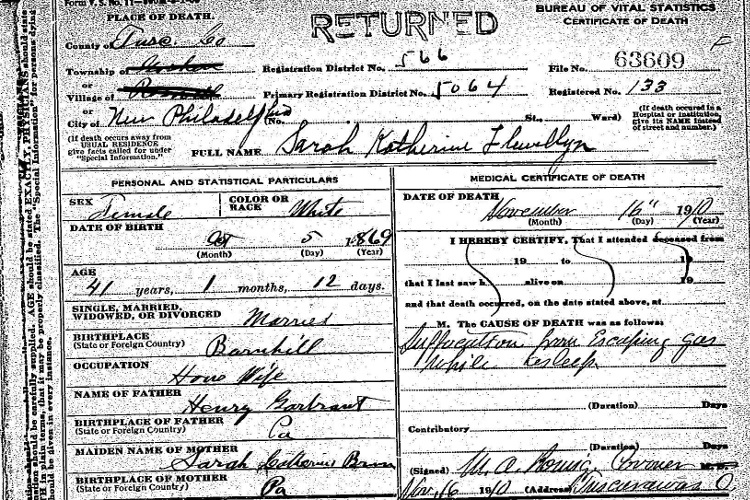 Form V. S. No. 11
PLACE OF DEATH.
RETURNED
BUREAU OF VITAL STATISTICS
CERTIFICATE OF DEATH
County of Tusc. Co
Township of
or
Registration District No. 566
File No. 63609
Village of
or
Primary Registration District No. 5064
Registered No. 133
City of New Philadelphia (No. St., Ward)
(If death occured in a Hospital or institution, give its NAME instead of street and number.)
(If death occurs away from USUAL RESIDENCE give facts called for under "Special Information.")
FULL NAME Sarah Katherine Llewellyn
PERSONAL AND STATISTICAL PARTICULARS
SEX Female
COLOR OR RACE White
DATE OF BIRTH
Oct 5 1869
(Month) (Day) (Year)
AGE
41 years, 1 months, 12 days.
SINGLE, MARRIED, WIDOWED, OR DIVORCED Married
BIRTHPLACE
(State or Foreign Country) Barnhill
OCCUPATION
House Wife
NAME OF FATHER
Henry
BIRTHPLACE OF FATHER
(State or Foreign Country) Pa
MAIDEN NAME OF MOTHER
Sarah Catherine
BIRTHPLACE OF MOTHER
(State or Foreign Country) Pa
MEDICAL CERTIFICATE OF DEATH
DATE OF DEATH
November 16" 1910
(Month) (Day) (Year)
I HEREBY CERTIFY, That I attended deceased from
19 to 19
that I last saw h alive on 19
and that death occurred, on the date stated above, at
M. The CAUSE OF DEATH was as follows:
Suffocation from Escaping gas
while asleep
(Duration) Days
Contributory
(Duration) Days
(Signed) Coroner M. D.
Nov. 16 1910 (Address) Tuscarawas O
EXACTLY. PHYSICIANS should state
"Special Information" for persons dying
should be carefully supplied. AGE should be stated
in plain terms, that it may be properly classified. The
should be given in every instance.